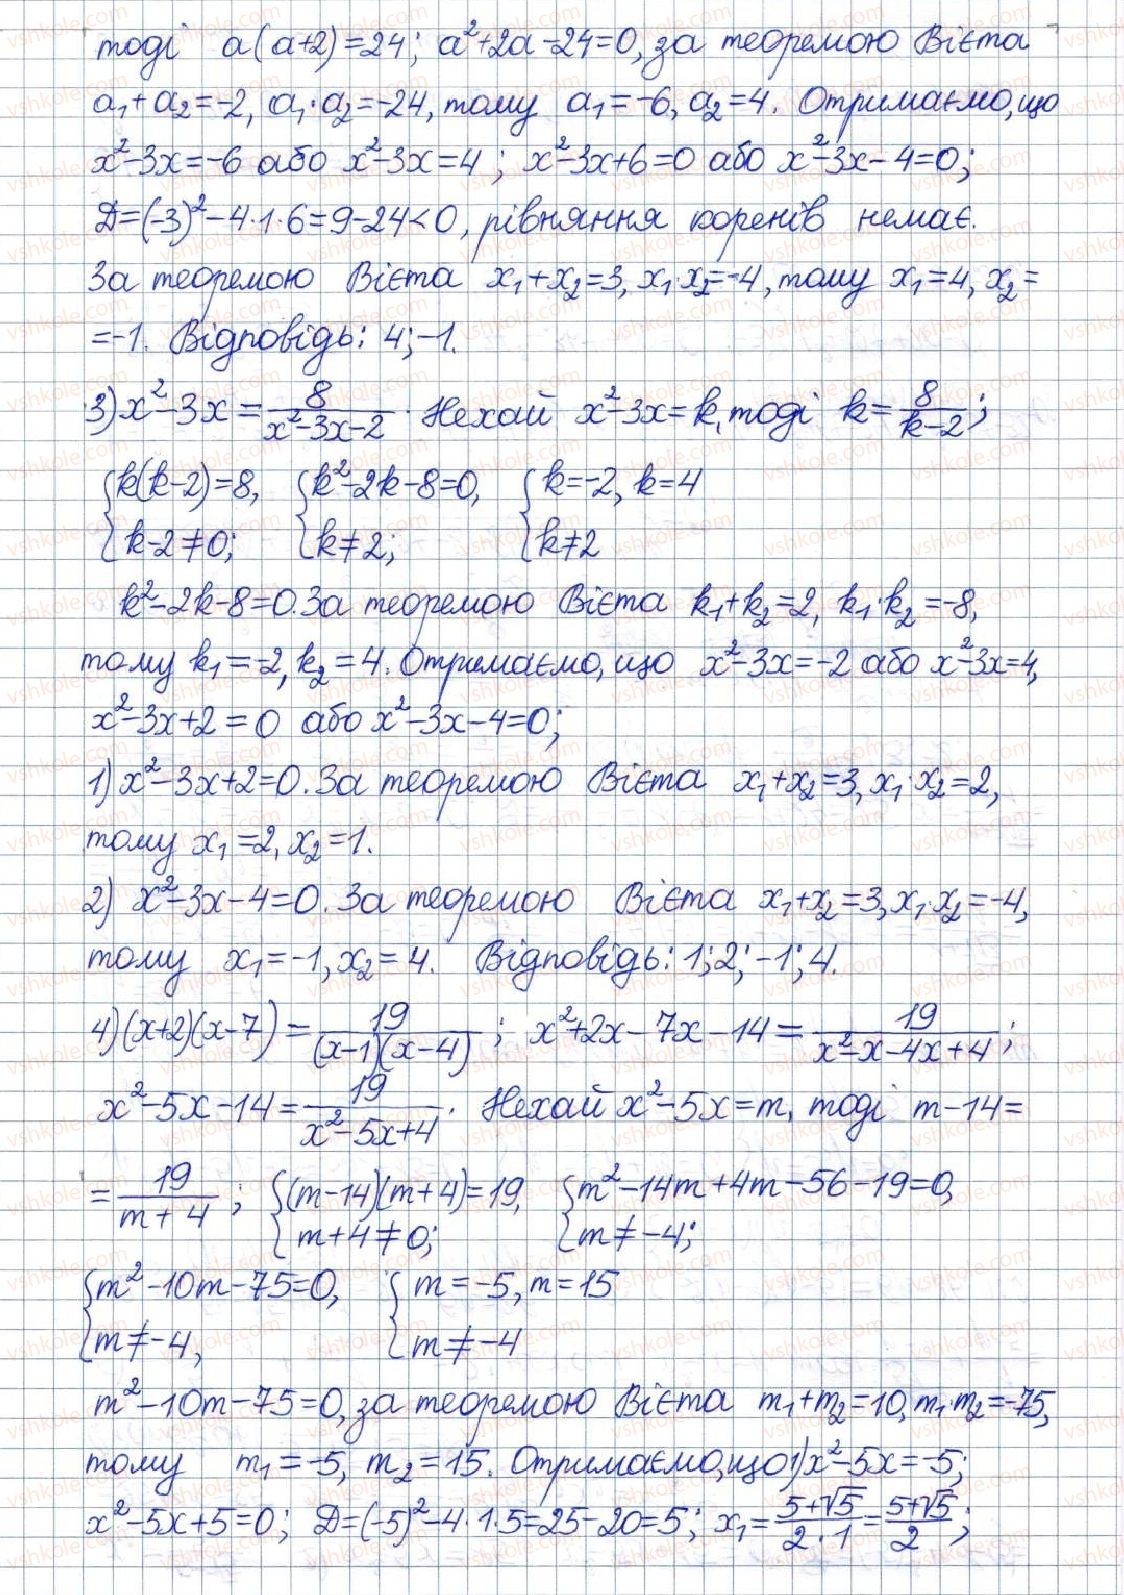 тоді a(a+2)=24; a²+2a-24=0, за теоремою Вієта
a₁+a₂=-2, a₁·a₂=-24, тому a₁=-6, a₂=4. Отримаємо, що
x²-3x=-6 або x²-3x=4; x²-3x+6=0 або x²-3x-4=0;
D=(-3)²-4·1·6=9-24<0, рівняння коренів немає.
За теоремою Вієта x₁+x₂=3, x₁·x₂=-4, тому x₁=4, x₂=
=-1. Відповідь: 4;-1.
3) x²-3x=8/(x²-3x-2). Нехай x²-3x=k, тоді k=8/(k-2);
{k(k-2)=8, {k²-2k-8=0, {k=-2, k=4
{k-2≠0; {k≠2; {k≠2
k²-2k-8=0. За теоремою Вієта k₁+k₂=2, k₁·k₂=-8,
тому k₁=-2, k₂=4. Отримаємо, що x²-3x=-2 або x²-3x=4,
x²-3x+2=0 або x²-3x-4=0;
1) x²-3x+2=0. За теоремою Вієта x₁+x₂=3, x₁·x₂=2,
тому x₁=2, x₂=1.
2) x²-3x-4=0. За теоремою Вієта x₁+x₂=3, x₁·x₂=-4,
тому x₁=-1, x₂=4. Відповідь: 1;2;-1;4.
4) (x+2)(x-7)=19/((x-1)(x-4)); x²+2x-7x-14=19/(x²-x-4x+4);
x²-5x-14=19/(x²-5x+4). Нехай x²-5x=m, тоді m-14=
=19/(m+4); {(m-14)(m+4)=19, {m²-14m+4m-56-19=0,
{m+4≠0; {m≠-4;
{m²-10m-75=0, {m=-5, m=15
{m≠-4, {m≠-4
m²-10m-75=0, за теоремою Вієта m₁+m₂=10, m₁·m₂=-75,
тому m₁=-5, m₂=15. Отримаємо, що 1) x²-5x=-5;
x²-5x+5=0; D=(-5)²-4·1·5=25-20=5; x₁=(5+√5)/(2·1)=(5+√5)/2;